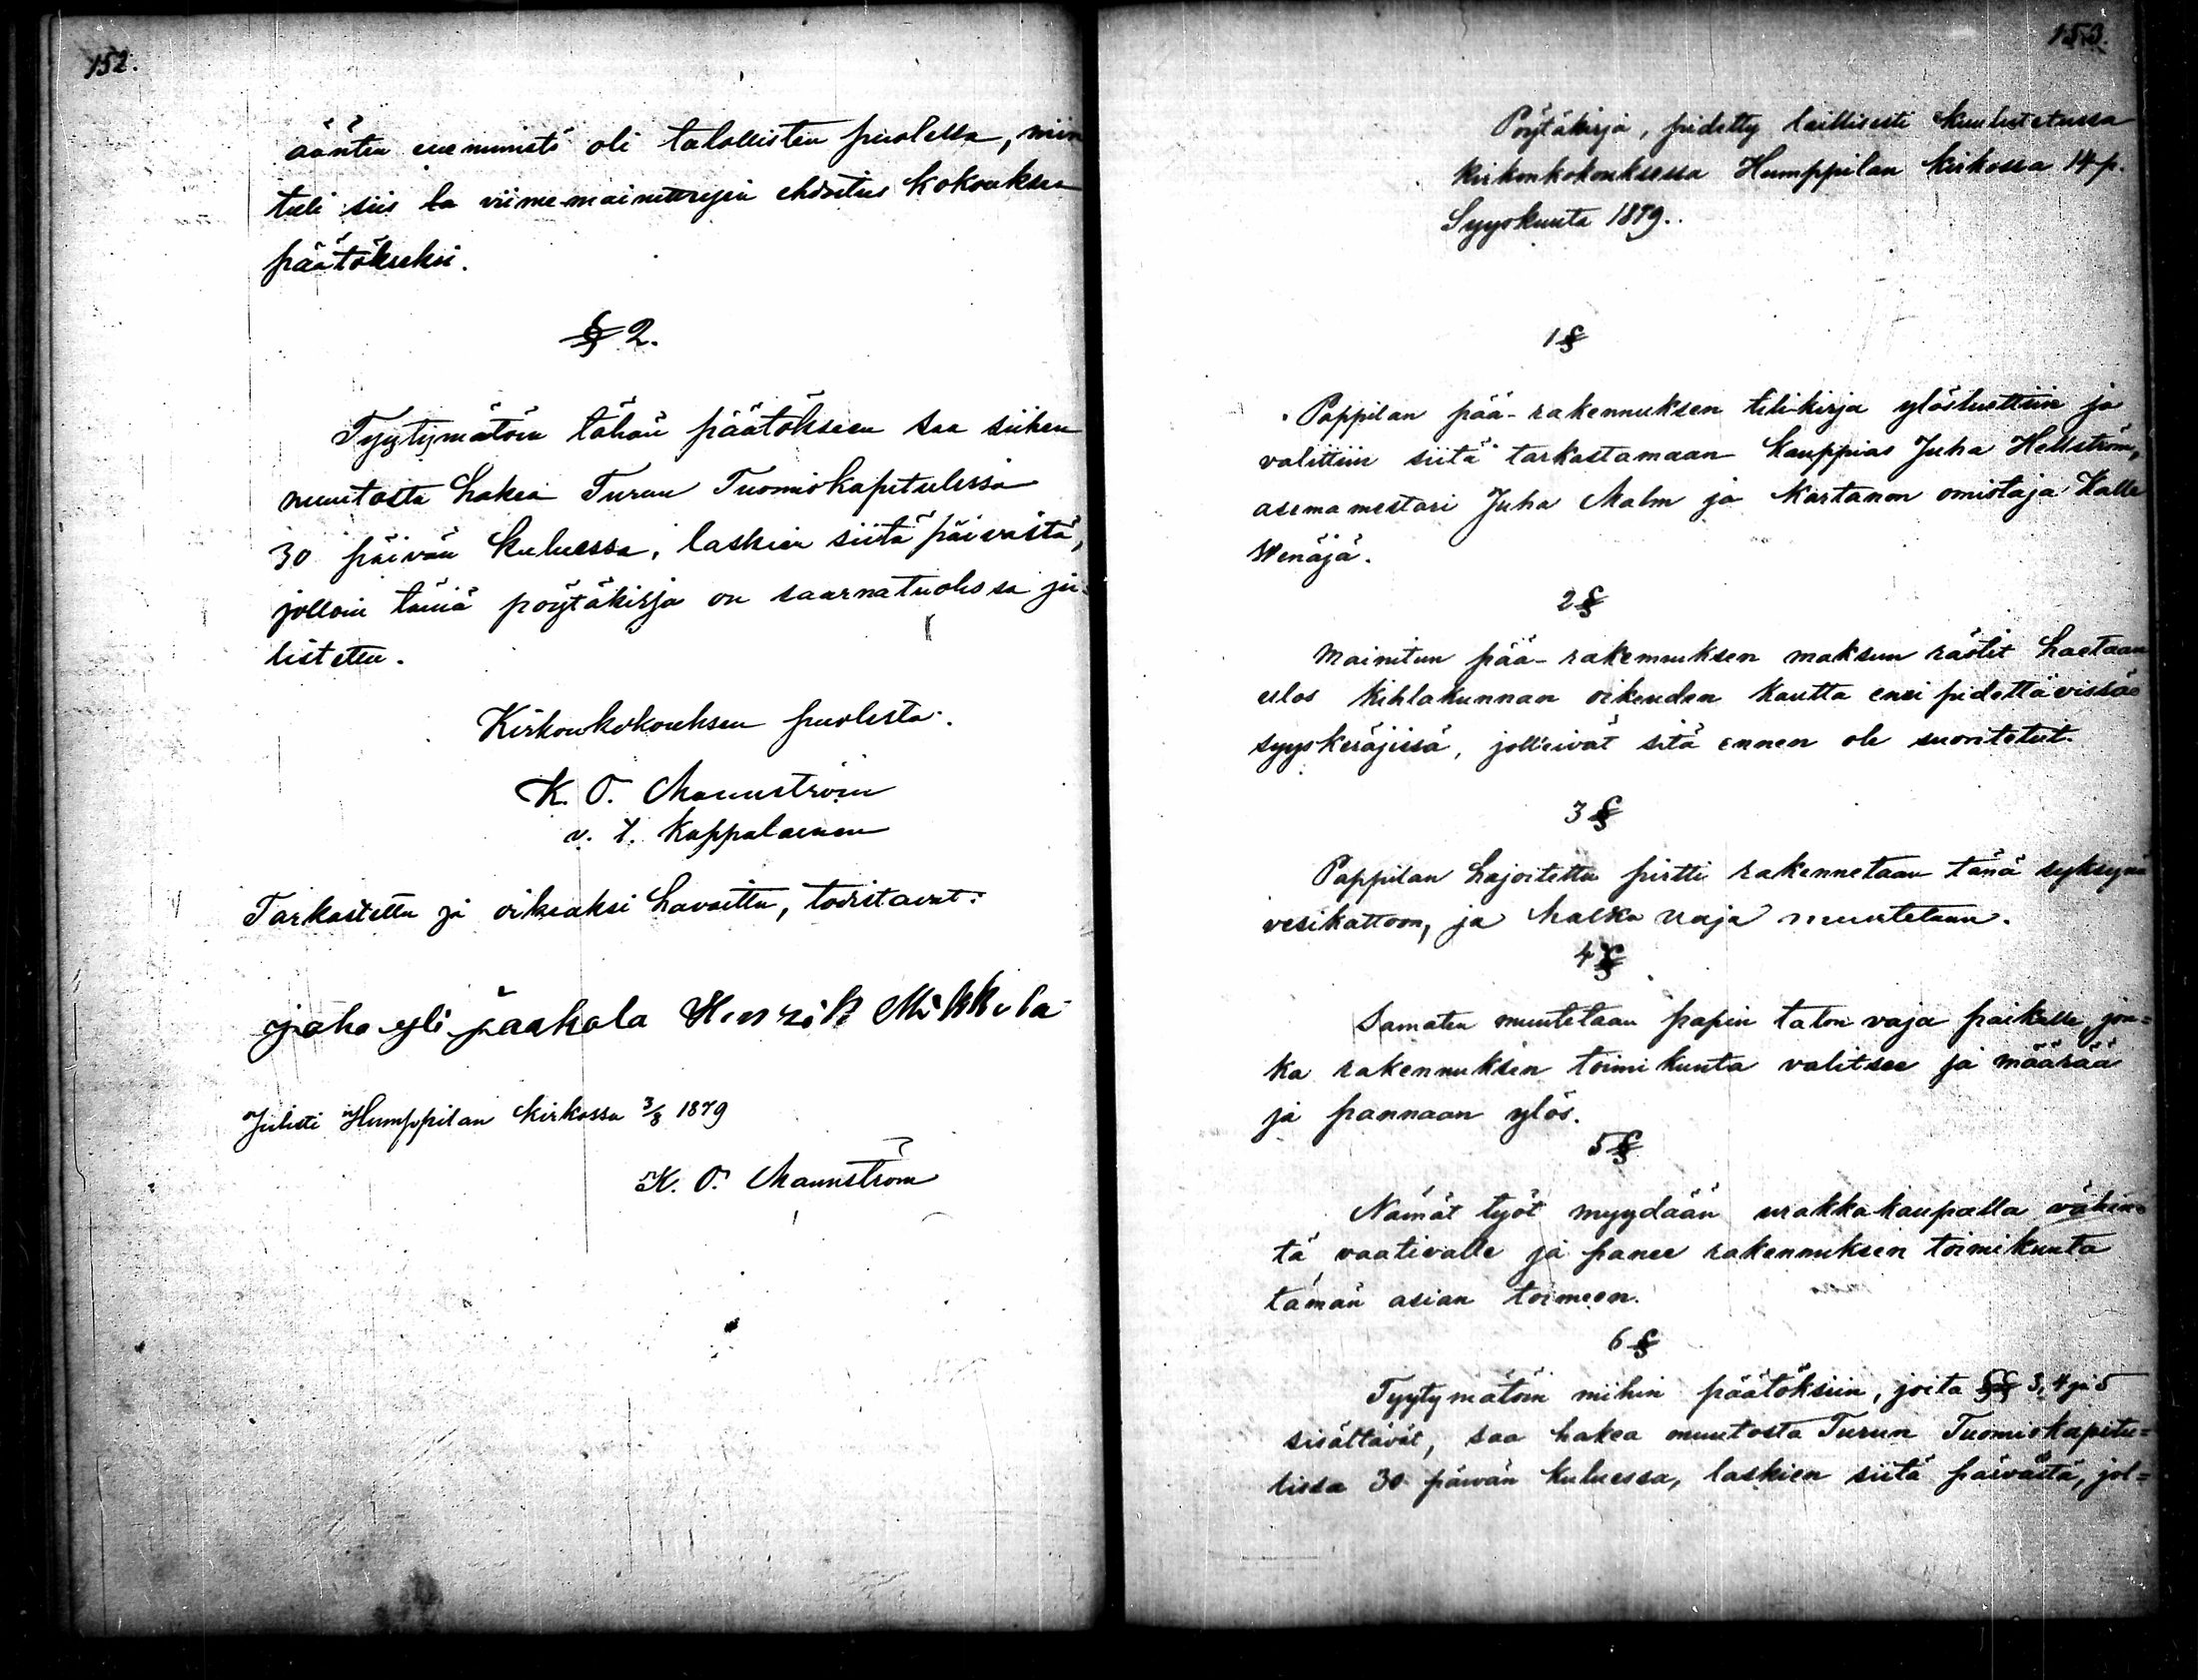 152.
ääntin enemmistö oli talollisten puolella, niin
tuli siis viimemainittujen ehdoitus kokouksen
päätökseksi.
§ 2.
Tyytymätöin tähän päätökseen saa siihen
muutosta hakea Turun Tuomiokapitulissa
30 päivän kuluessa, laskien siitä päivästä,
jolloin tämä pöytäkirja on saarnatuolissa ju-
listettu.
Kirkonkokouksen puolesta:
K. O. Mannström
v. t. Kappalainen
Tarkastettu ja oikeaksi havaittu, todistavat:
juho yli jaakola Henrik Mikkola
Julisti Humppilan kirkossa 3/8 1879
K. O. Mannström
153.
Pöytäkirja, pidetty laillisesti kuulutetussa
kirkonkokouksessa Humppilan kirkossa 14 p.
Syyskuuta 1879.
1 §
Pappilan pää-rakennuksen tilikirja ylösluettiin ja
valittiin siitä tarkastamaan kauppias Juha Hellström,
asemamestari Juha Malm ja kartanon omistaja Kalle
Wenäjä.
2 §
Mainitun pää-rakennuksen maksun rästit haetaan
ulos kihlakunnan oikeuden kautta ensi pidettävissä
syyskeräjissä, joll'eivät sitä ennen ole suoritetut.
3 §
Pappilan hajoitettu pirtti rakennetaan tänä syksynä
vesikattoon, ja halko vaja muutetaan.
4 §
Samaten muutetaan papin talon vaja paikalle, jon=
ka rakennuksen toimikunta valitsee ja määrää
ja pannaan ylös.
5 §
Nämät työt myydään urakkakaupalla vähin=
tä vaativalle ja panee rakennuksen toimikunta
tämän asian toimeen.
6 §
Tyytymätöin niihin päätöksiin, joita §§ 3, 4 ja 5
sisältävät, saa hakea muutosta Turun Tuomiokapitu=
lissa 30 päivän kuluessa, laskien siitä päivästä, jol=